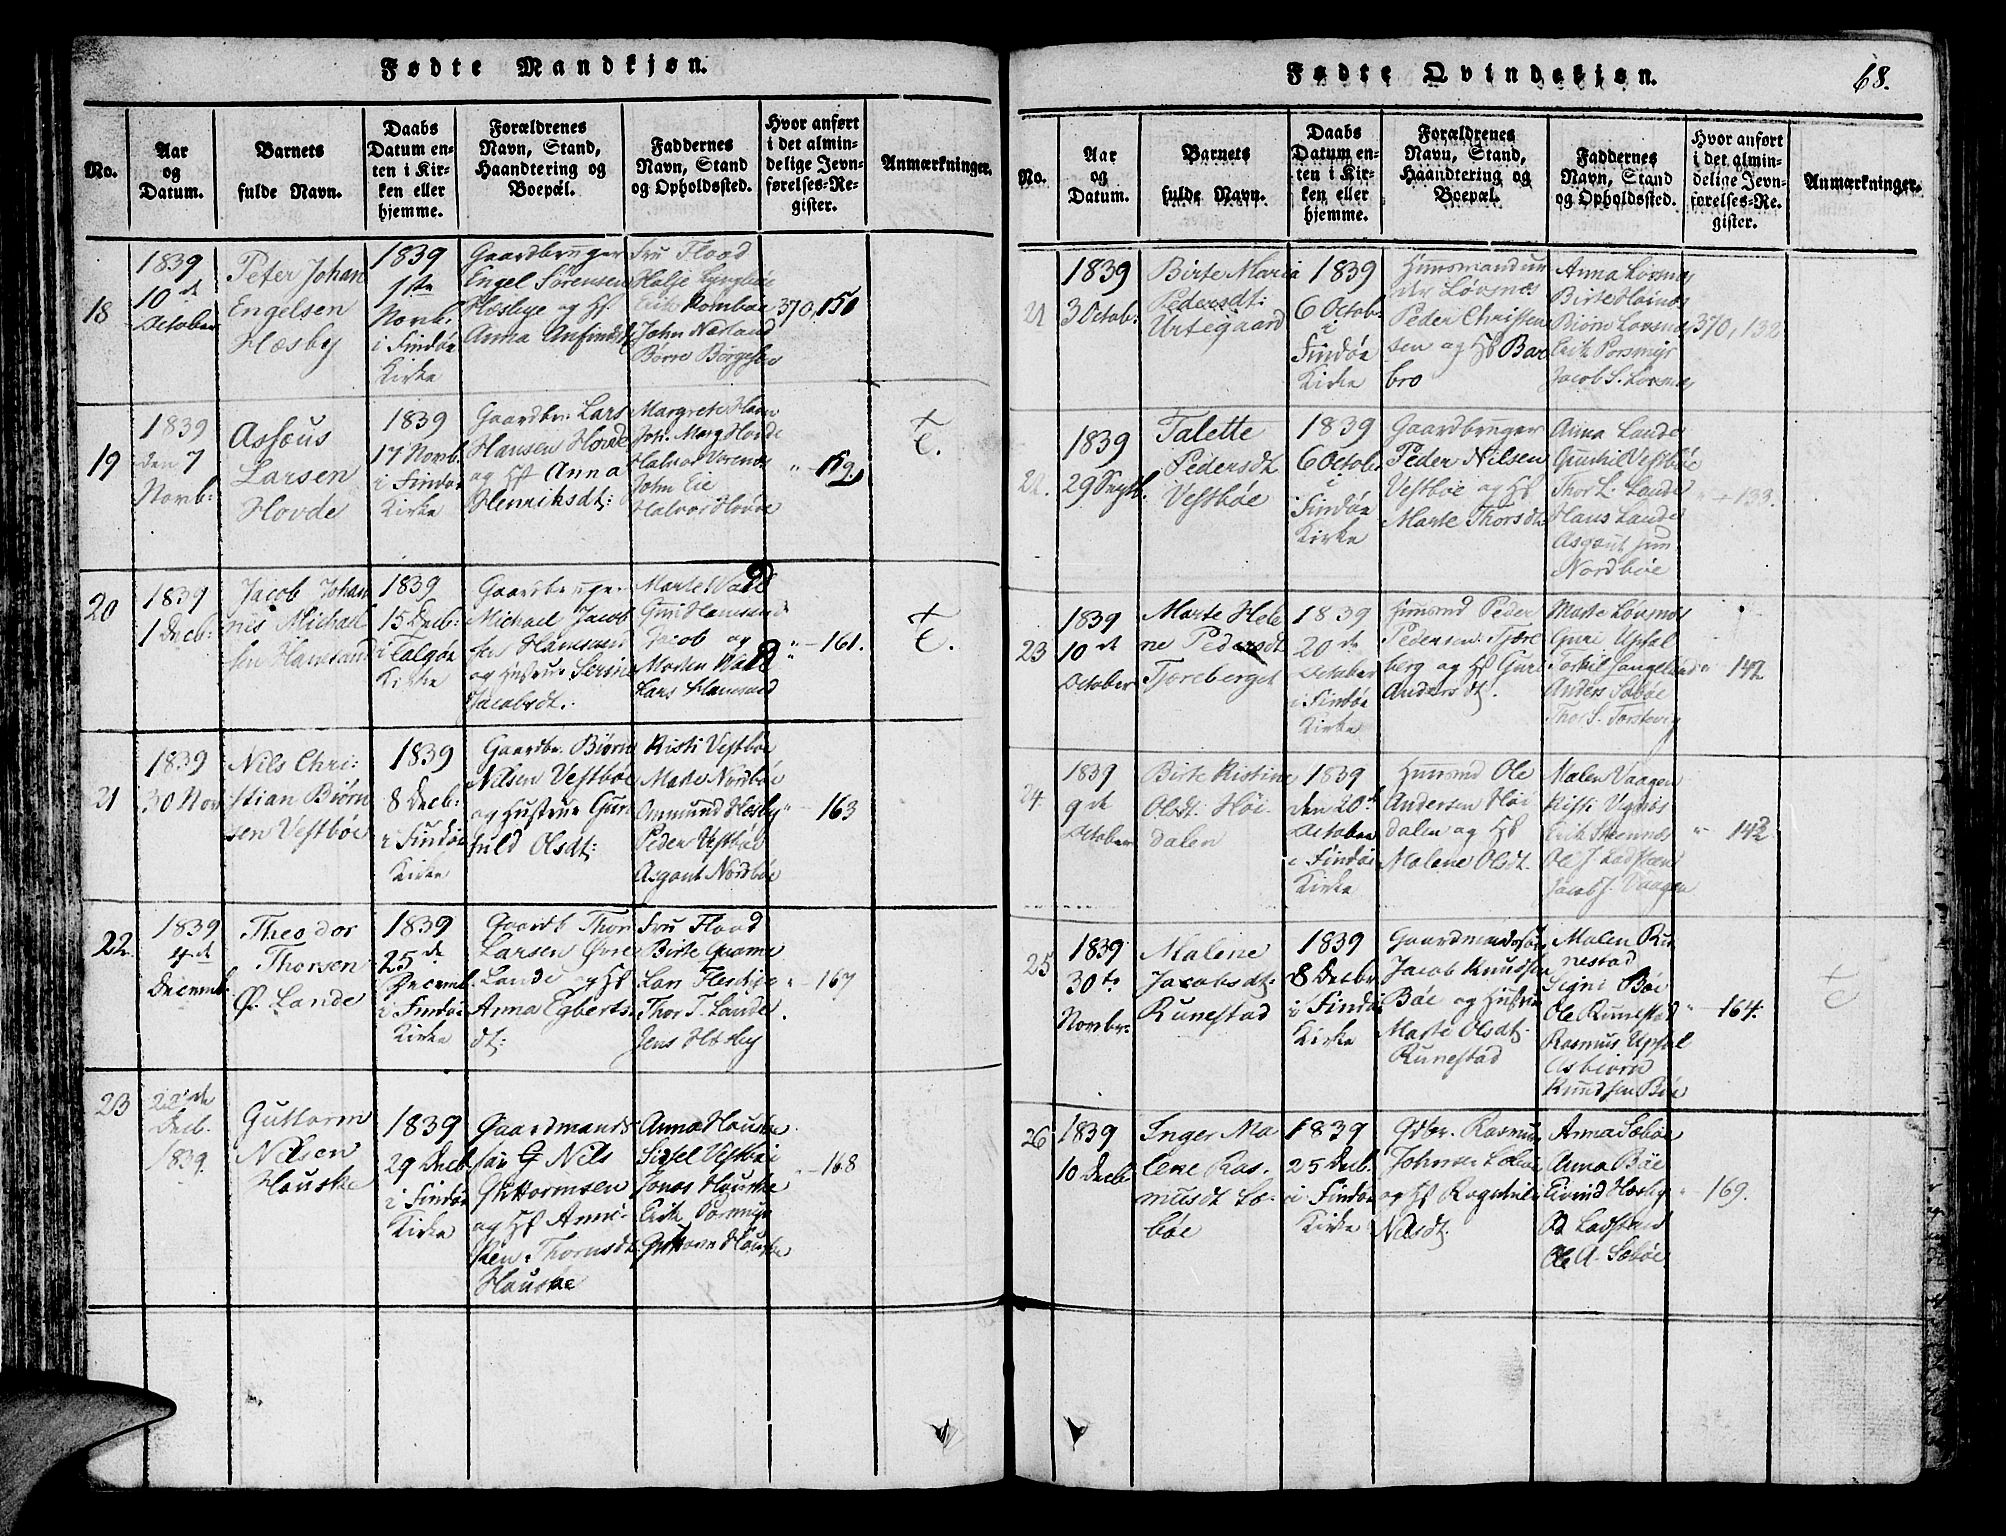 Fødte Mandkjøn.
No.
Aar
og
Datum.
Barnets
fulde Navn.
Daabs
Datum en-
ten i Kir-
ken eller
hjemme.
Forældrenes
Navn, Stand,
Haandtering og
Boepæl.
Faddernes
Navn, Stand
og Opholdssted.
Hvor anført
i det almin-
delige Jevn-
førelses-Re-
gister.
Anmærkninger.
18
1839
10de
October
Peter Johan
Engelsen
Hæsby
1839
1ste
Novb.
i Findøe
Kirke
Gaardbruger
Engel Sørensen
Hæsbye og Hf.
Anna Anfindsdt
Fru Flood
John Næsland
370, 150
19
1839
den 7
Novb:
Asseus
Larsen
Hovde
1839
17 Novb.
i Findøe
Kirke
Gaardbr. Lars
Hansen Hovde
og Hst Anna
Henriksdt:
Margrete Ham
Joh. Marg Hovde
Halvor Vorenæs
John Eie
Halvor Hovde
" 159.
+
C.
20
1839
1 Decb:
Jacob Johan
nes Michael
sen Hamsand
1839
15 Decb:
i Talgøe
Kirke
Gaardbruger
Michael Jacob
sen Hamsand
og Hustrue Serine
Jacobsdt.
Marte Vold
Guri Hamsand
Jacob og
Morten Vold
Lars Hamsand
" 161.
+
C.
21
1839
30 Nov
Nils Chri:
stian Biørn
sen Vestbøe
1839
8 Decb:
i Findøe
Kirke
Gaardbr. Biørn
Nilsen Vestbøe
og Hustrue Gun
hild Olsdt:
Kisti Vestbøe
Marte Nordbøe
Ommund Hæsby
Peder Vestbøe
Asgout Nordbøe
" 163
22
1839
4de
Decemb.
Theodor
Thorsen
Ø. Lande
1839
25de
Decemb.
i Findøe
Kirke
Gaardb Thor
Larsen Øvre
Lande og Hf
Anna Egberts
dt:
Fru Flood
Birte Qvame
Thor T. Lande
" 167
23
22de
Decb.
1839.
Guttorm
Nilsen
Houske
1839
29 Decb
i Findøe
Kirke
Gaardmands
søn G Nils
Guttormsen
og Hf Anne-
ken Thormsdt.
Houske
Anna Houske
Sissel Vestbøe
Jonas Houske
Erik Porsmyr
Guttorm Houske
" 168
Fødte Qvindekjøn.
68.
No.
Aar
og
Datum.
Barnets
fulde Navn.
Daabs
Datum en-
ten i Kir-
ken eller
hjemme.
Forældrenes
Navn, Stand,
Haandtering og
Boepæl.
Faddernes
Navn, Stand
og Opholdssted.
Hvor anført
i det almin-
delige Jevn-
førelses-Re-
gister.
Anmærkninger.
21
1839
3 Octob:
Birte Maria
Pedersdt:
Urtegaard
1839
6 Octob:
i
Findøe
Kirke
Huusmand un
der Løvsnæs
Peder Christen
sen og Hf Bar
bro
Anna Løvsnæs
Birte Høinæs
Biørn Løvsnæs
Erik Porsmyr
Jacob S. Løvsnæs
370, 132
22.
1839
29 Septb.
Talette
Pedersdt
Vestbøe
1839
6 Octob:
i
Findøe
Kirke
Gaardbruger
Peder Nilsen
Vestbøe og Hf
Marte Thorsdt
Anna Lande
Gunhil Vestbøe
Thor L. Lande
Hans Lande
Asgout jun
Nordbøe
" 133.
23
1839
10de
October
Marte Hele
ne Pedersdt
Tjereberget
1839
20de
October
i Findøe
Kirke
Huusmd Peder
Pedersen Tjære
berg og Hf Guri
Andersdt.
Marte Løvsnæs
Guri Upsal
Anders Sæbøe
Thor S. Torstevig
" 142
24.
1839
9de
October
Birte Kistine
Olsdt. Høi-
dalen
1839
den 20de
October
i Findøe
Kirke
Huusmd Ole
Andersen Høi
dalen og Hf
Malene Olsdt.
Malen Vaagen
Kisti Vignes
Erik Steennæs
Ole J. Ladstein
Jacob J. Vaagen
" 142
25
1839
30te
Novbr.
Malene
Jacobsdt:
Runestad
1839
8 Decbr
i Findøe
Kirke
Gaardmandssøn
Jacob Knudsen
Bøe og Hustrue
Marte Olsdt:
Runestad
Malen Ru
nestad
Signi Bøe
Ole Runestad
Rasmus Upsal
Asbiørn
Knudsen Bøe
" 164.
+
C
26
1839
10 Decb
Inger Ma
lene Ras-
musdt Sæ-
bøe
1839
25 Decb.
i Findøe
Kirke
Gdbr. Rasmus
Johnsen Sæbøe
og Hf Ragnhild
Nilsdt.
Anna Sæbøe
Anna Bøe
Eivind Hæsby
Ole A. Sæbøe
" 169.